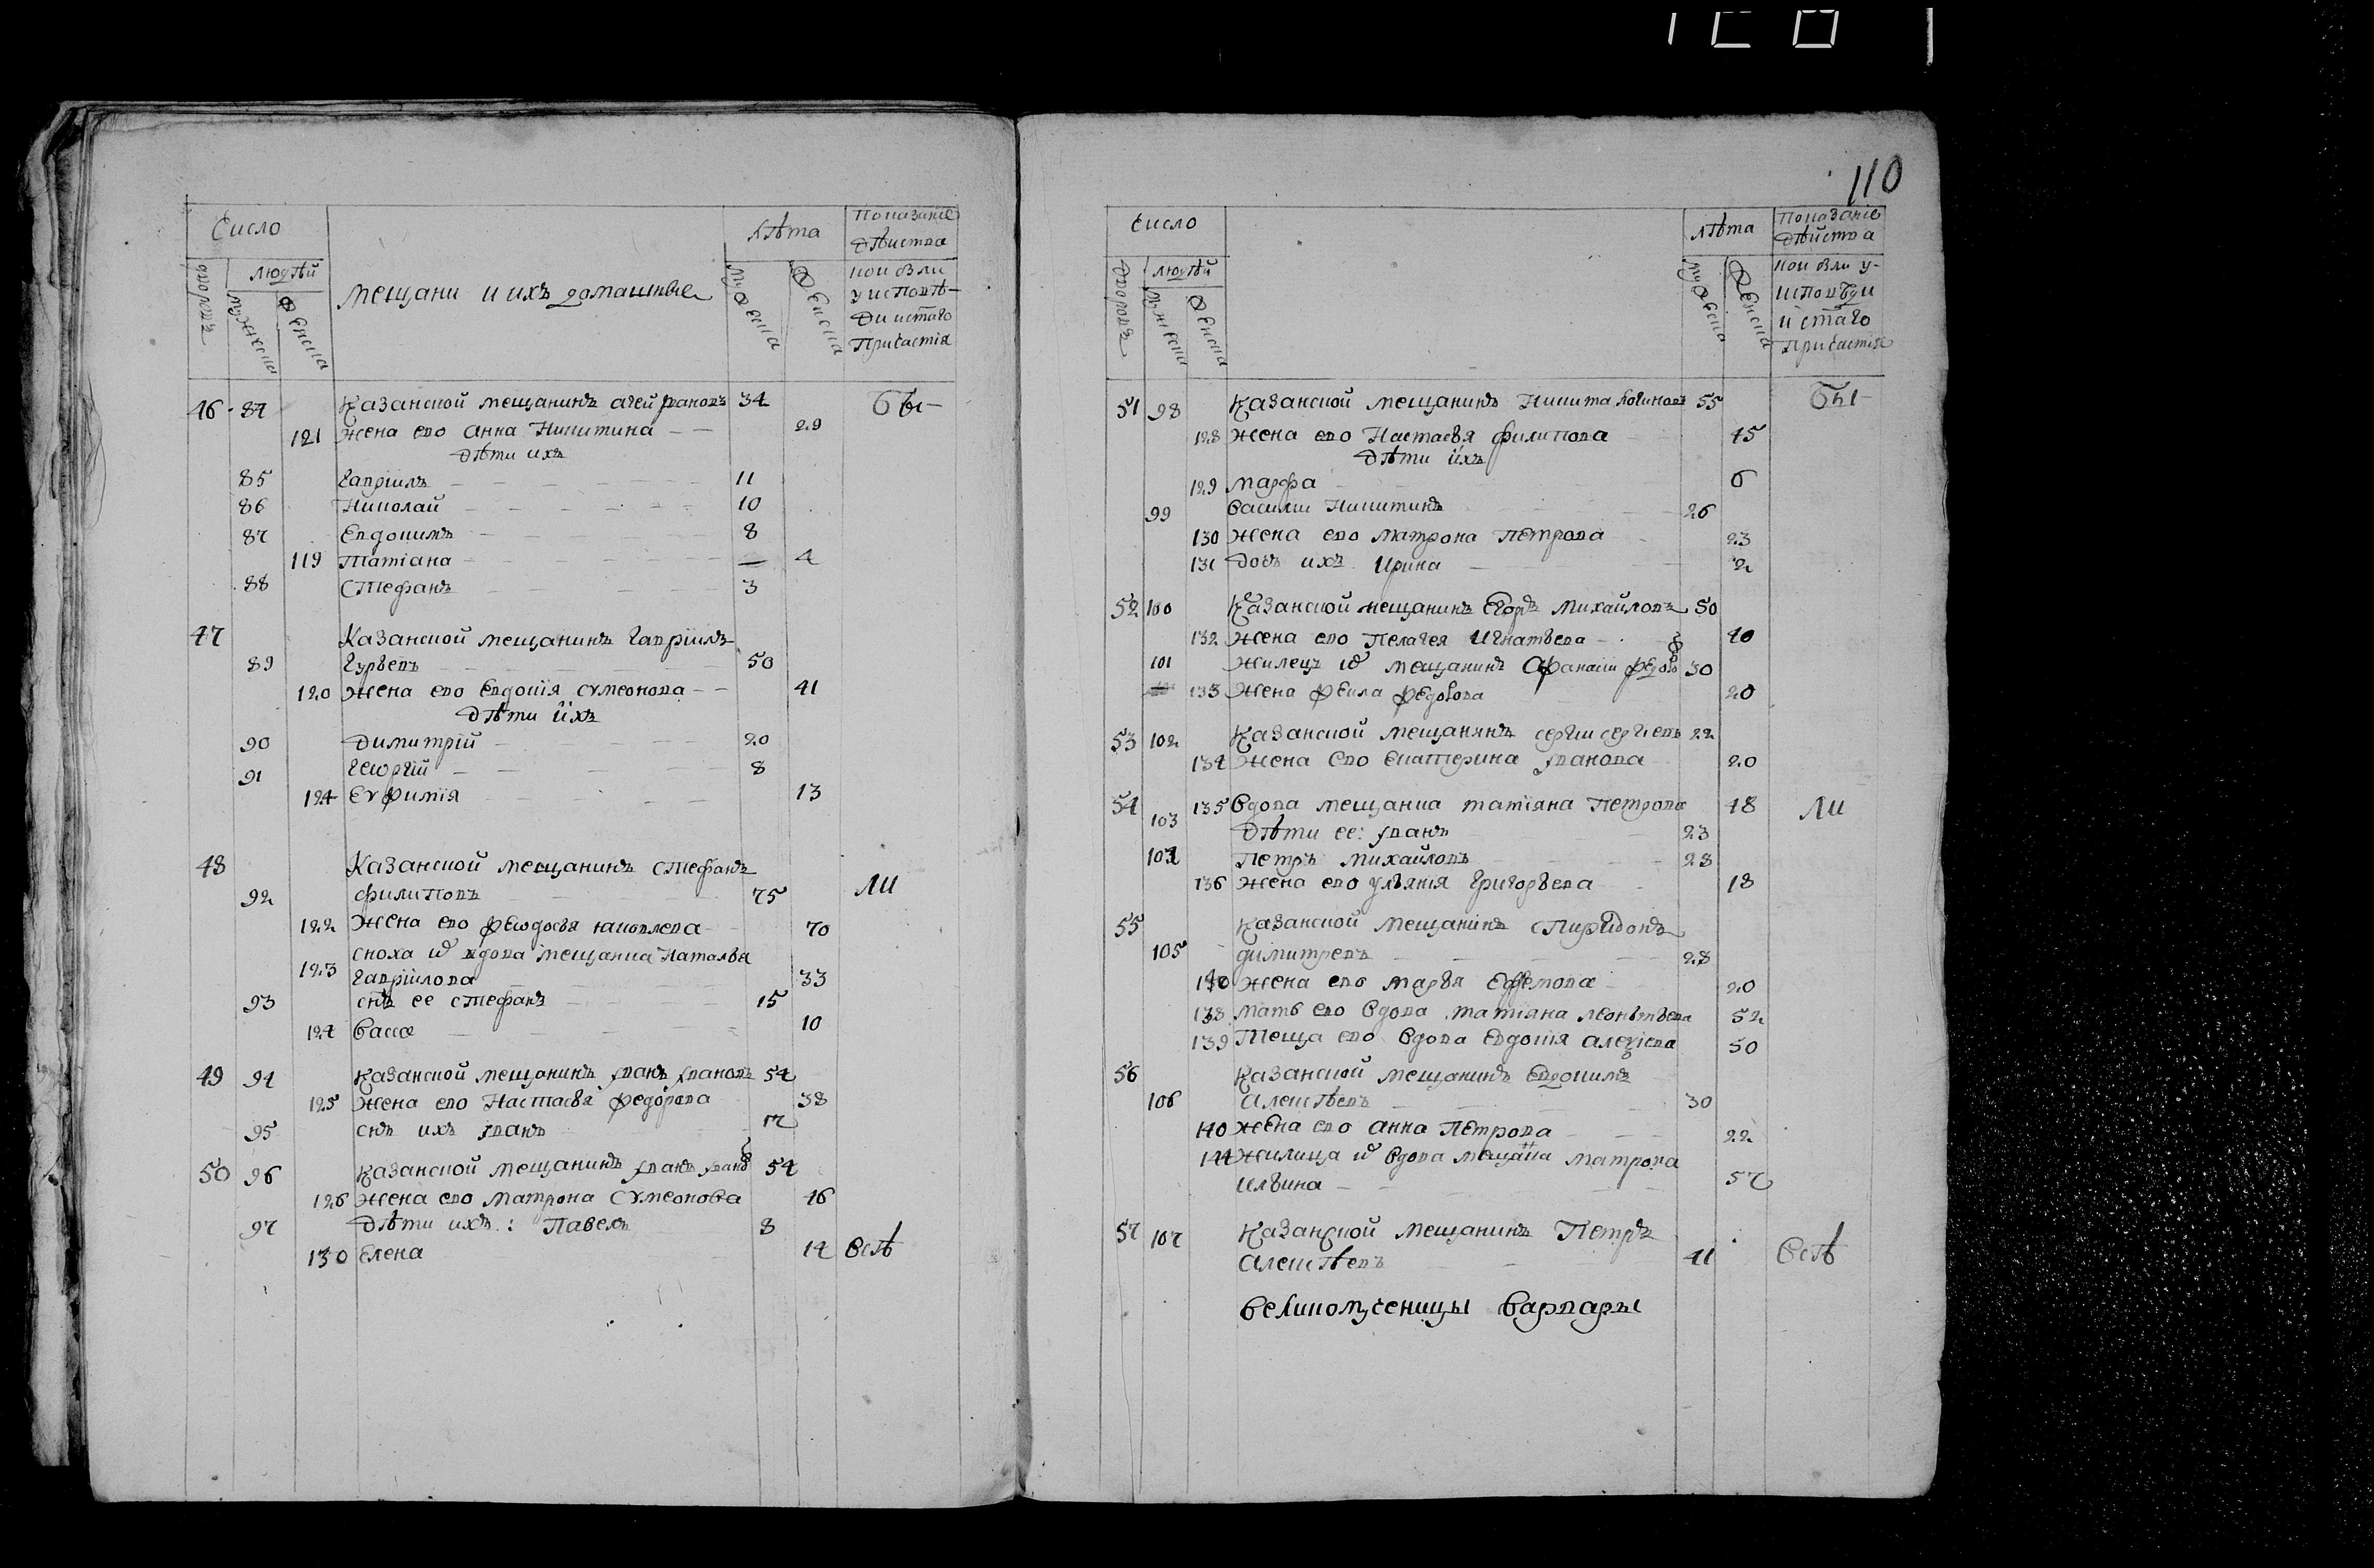 Число
Лѣта
Показаніе
дѣиства
дворовъ
людѣй
мужеска
женска
мещани и ихъ домашные
мужеска
женска
кои были
у исповѣ-
ди истаго
Причастія
46 84 Казанской мещанинъ агей ивановъ 34 бы-
121 жена ево анна Никитина 29
дѣти ихъ
85 гавріилъ 11
86 Николай 10
87 Евдокимъ 8
119 татіана 4
88 Стефанъ 3
47 Казанской мещанинъ гавріилъ
89 гурьевъ 50
120 жена ево Евдокія сѵмеонова 41
дѣти ихъ
90 димитрій 20
91 георгій 8
124 Еѵфимія 13
48 Казанской мещанинъ Стефанъ
92 филиповъ 75 ли
122 жена ево феодосья яковлева 70
сноха и вдова мещанка Наталья
123 гавріилова 33
93 снъ ее стефанъ 15
124 васса 10
49 94 Казанской мещанинъ иванъ ивановъ 54
125 жена ево Настасья федорова 38
95 снъ ихъ иванъ 17
50 96 Казанской мещанинъ иванъ ивановъ 54
126 жена ево матрона Сѵмеонова 46
97 дѣти ихъ: Павелъ 8
130 Елена 14 всѣ
110
число
лѣта
показаніе
дѣйства
дворовъ
людѣй
мужеска
женска
мужеска
женска
кои были у-
исповѣди
и стаго
причастія
51 98 Казанской мещанинъ Никита 55 бы-
128 жена ево Настасья филипова 45
дѣти ихъ
129 марфа 6
99 василіи Никитинъ 26
130 жена ево матрона петрова 23
131 дочь ихъ ирина 2
52 100 Казанской мещанинъ Егоръ михайловъ 50
132 жена ево пелагея игнатьева 40
101 жилецъ и мещанинъ афанасіи федоровъ 30
133 жена фекла федорова 20
53 102 Казанской мещанинъ сергіи сергіевъ 22
134 жена ево екатерина иванова 20
54 135 вдова мещанка татіяна петрова 48 ли
103 дѣти ее: иванъ 23
104 петръ михайловъ 28
136 жена ево ульянія григорьева 18
55 Казанской мещанинъ спиридонъ
105 димитревъ 28
жена ево марья Ефремова 20
138 мать ево вдова татіяна леонтьева 52
139 теща ево вдова Евдокія алеѯіева 50
56 Казанской мещанинъ Евдокимъ
106 алексѣевъ 30
140 жена ево анна петрова 22
144 жилица и вдова мещанка матрона
ильина 57
57 107 Казанской мещанинъ петръ
алексѣевъ 41 всѣ
великомученицы варвары